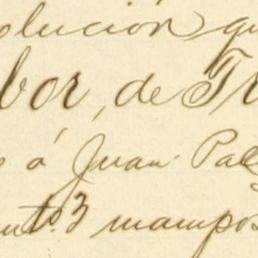 olución qu
bor, de Tr
o á Juan Pal
nto. 3 mampos